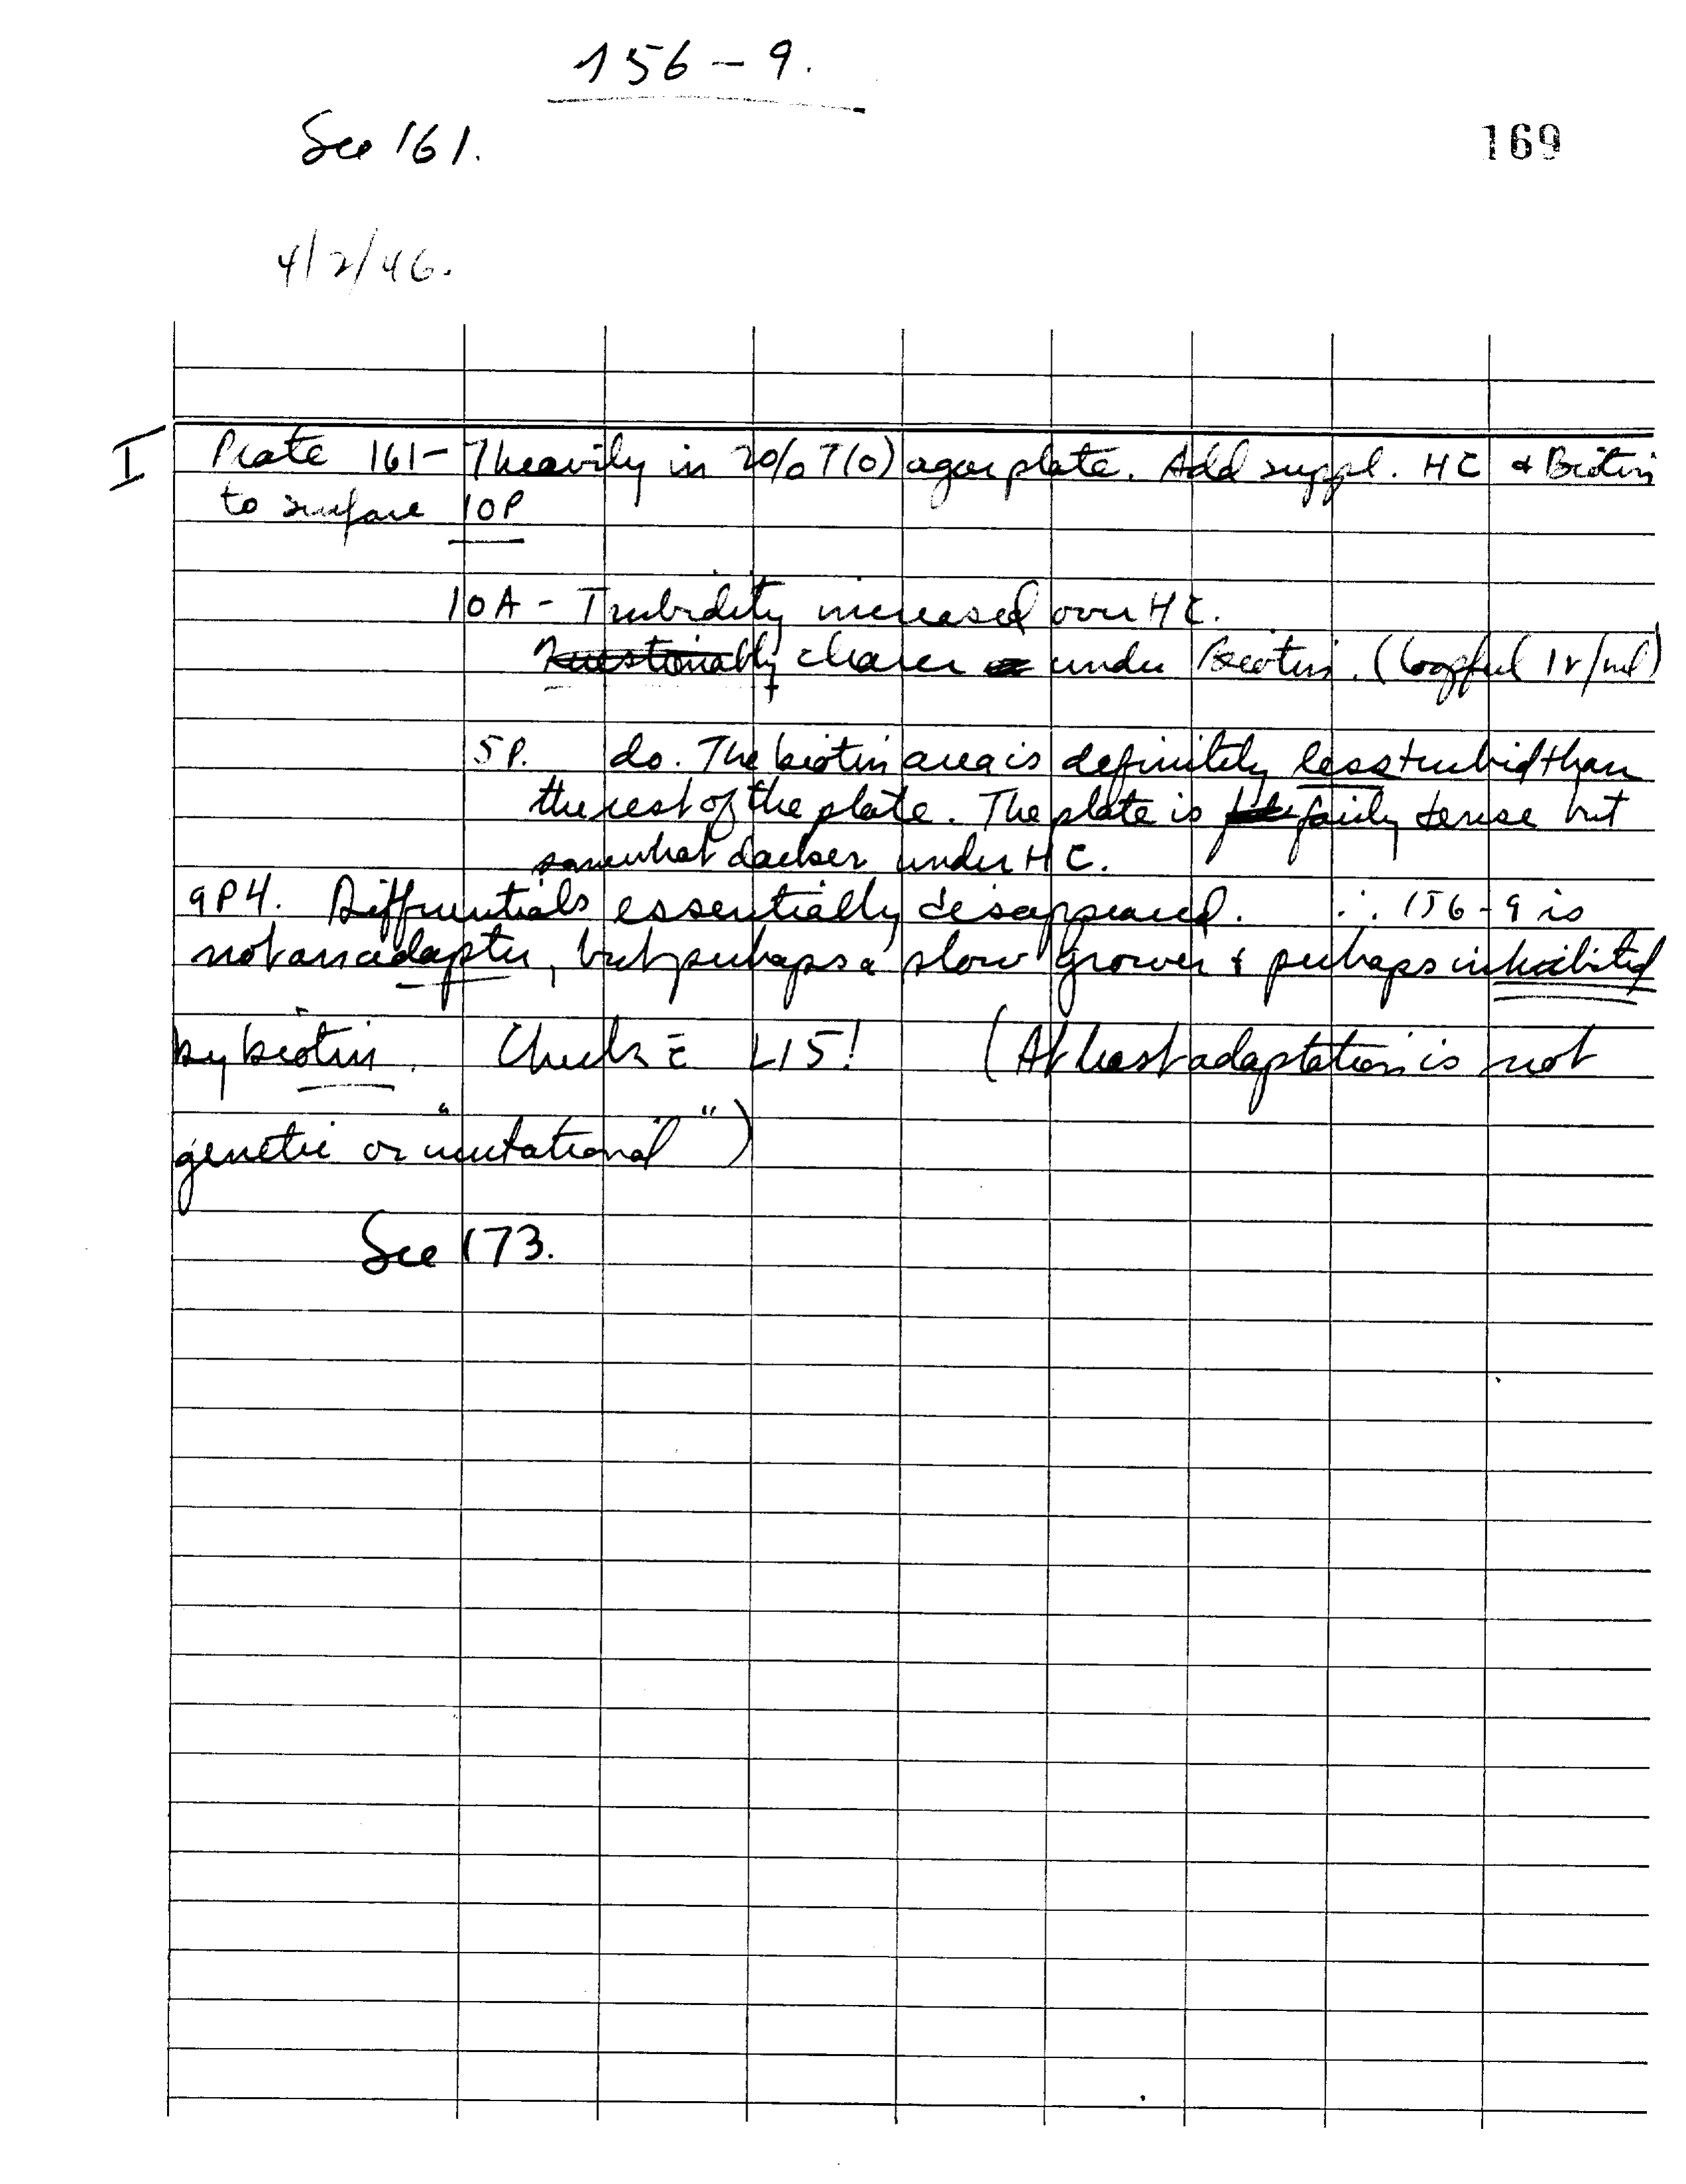 156-9.
See 161.
169
4/2/46.
I Plate 161-7 heavily in 20/0 T(0) agar plate. Add suppl. HC & Biotin
to surface 10P
10A - Turbidity increased over HC.
Questionably clearer under Biotin. (loopful 1γ/ml)
5P. do. The biotin area is definitely less turbid than
the rest of the plate. The plate is fairly dense but
somewhat darker under HC.
9P4. Differentials essentially disappeared. ∴ 156-9 is
not an adapter, but perhaps a slow grower & perhaps inhibited
by biotin. Check c̄ L15! (At least adaptation is not
genetic or "mutational")
See 173.